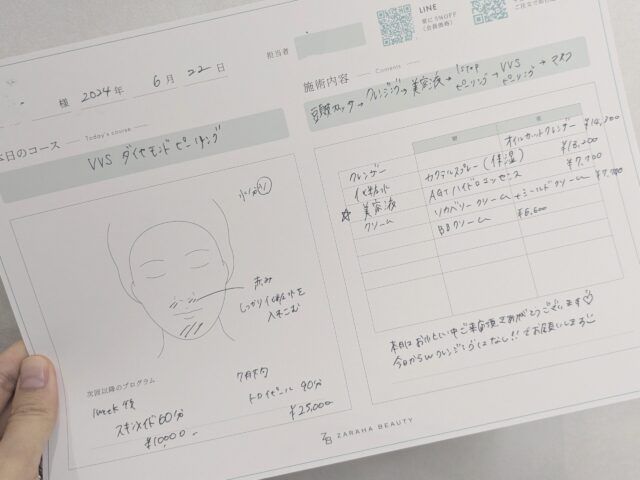 様 2024年 6月 22日
担当者
LINE
常に5%OFF
(会員価格)
本日のコース Today's course
VVS ダイヤモンドピーリング
赤み
しっかり化粧水を
入れこむ
次回以降のプログラム
1week後
スキンメイド60分
¥10000.
7月末
90分
¥25,000
施術内容 Contents
クレンジング→美容液→1stop ピーリング→VVS ピーリング→マスク
朝 夜
クレンザー オイルカットクレンザー ¥14,300
化粧水 カクテルスプレー(保湿) ¥13,200
☆美容液 AGTハイドロエッセンス ¥7,700
クリーム リカバリークリーム+シールドクリーム ¥7,700
BBクリーム ¥6,600
本日はお忙しい中ご来店頂きありがとうございます♡
今日からWクレンジングはなし!!でお願いします
ZARAHA BEAUTY